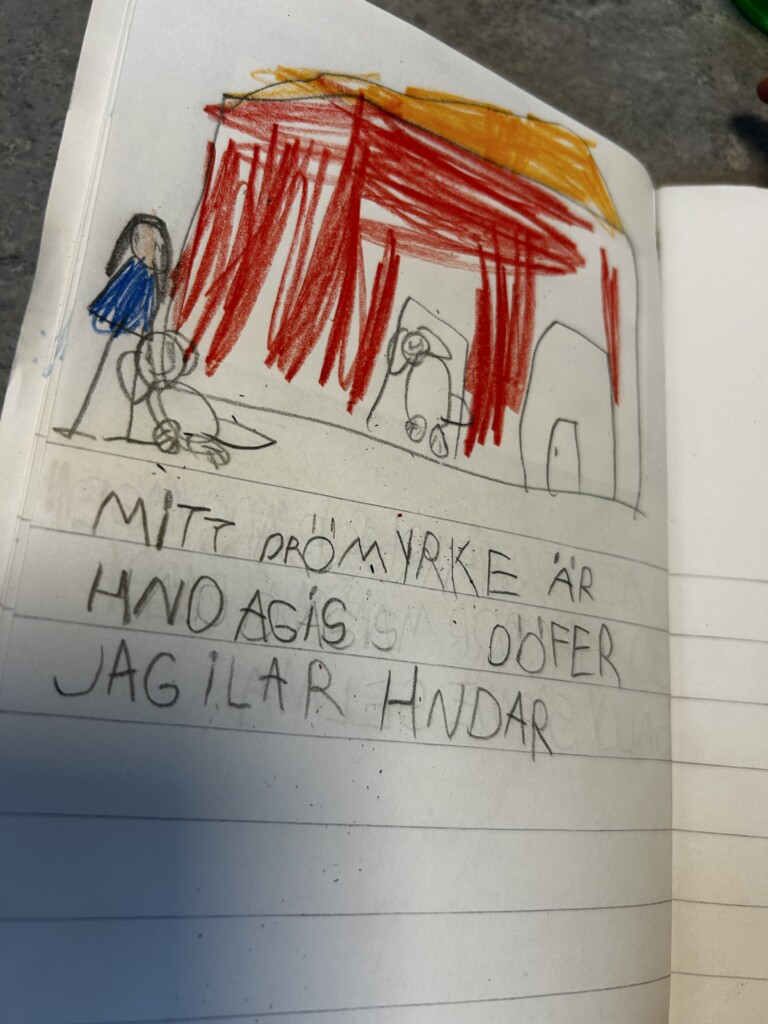 MITT DRÖMYRKE ÄR
HNDAGIS DÖFER
JAG ILAR HNDAR